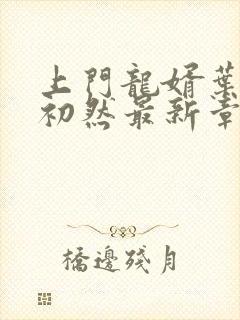 上門龍婿葉
初然最新章
橋邊殘月